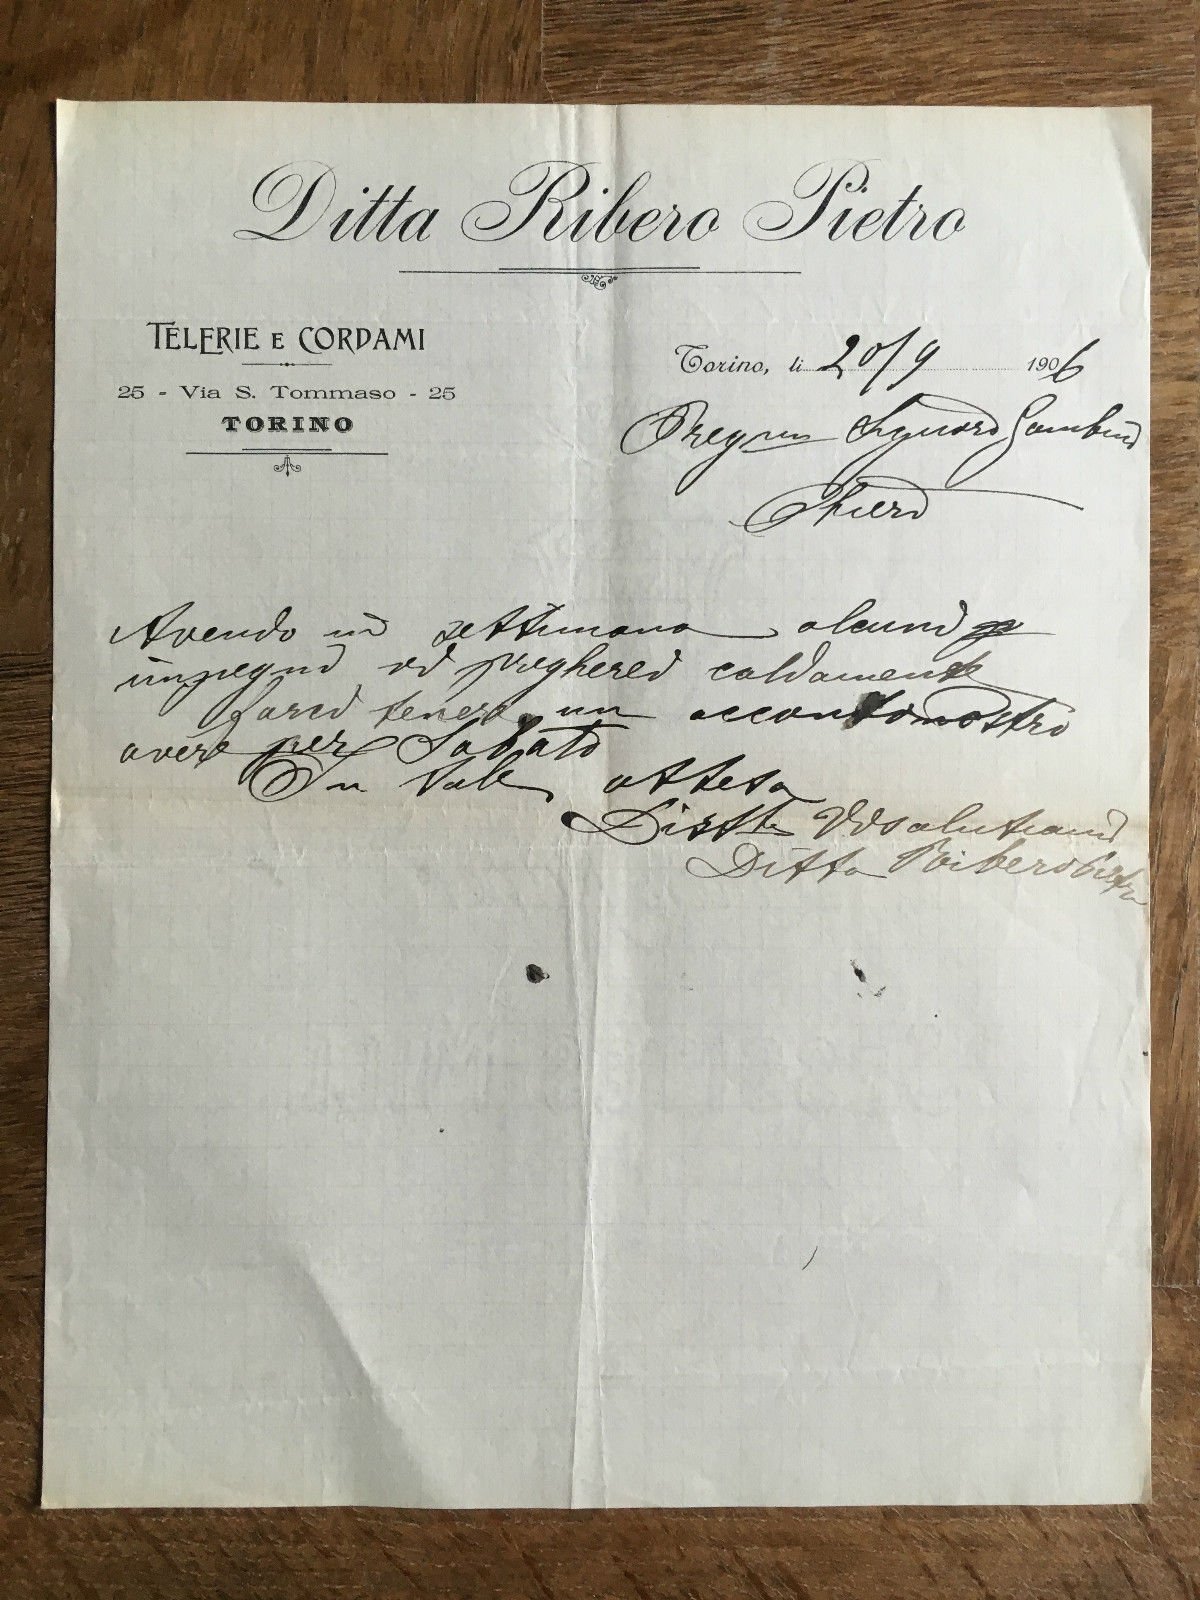 Ditta Ribero Pietro
TELERIE E CORDAMI
25 - Via S. Tommaso - 25
TORINO
Torino, li 20/9 1906
Pregmo Signore Gambino
Chieri
Avendo in settimana alcuni
impegni vi pregherei caldamente
farci tenere un acconto nostro
avere per Sabato
In tale attesa
Distte Vi salutiamo
Ditta Ribero Pietro